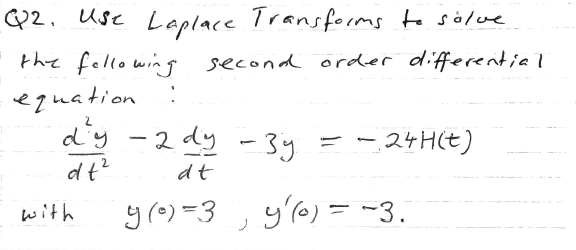 Q2. Use Laplace Transforms to solve
the following second order differential
equation :
d²y/dt² - 2 dy/dt - 3y = - 24H(t)
with y(0)=3 , y'(0) = -3.